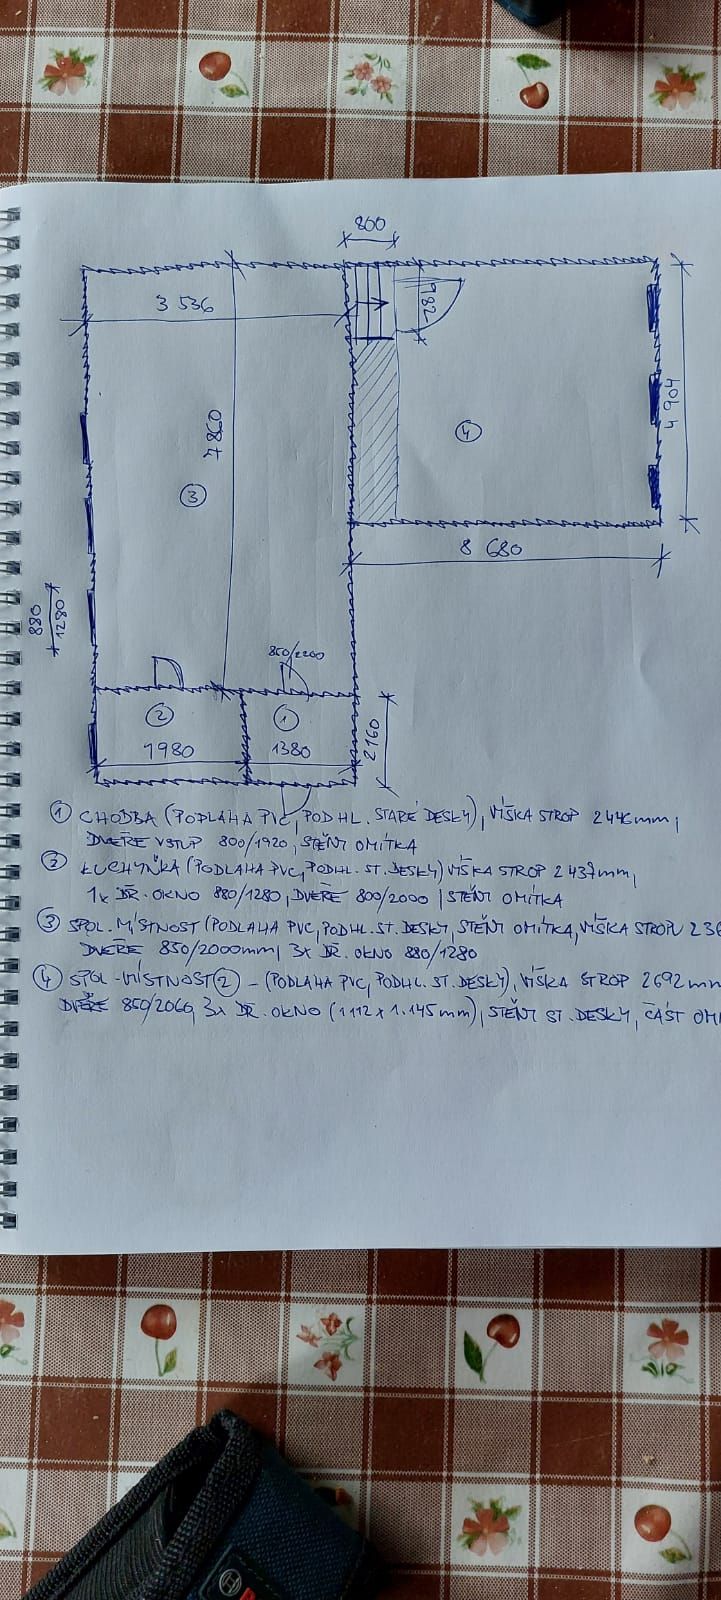 800
3 536
1287
4 904
7860
④
③
8 680
880
1280
850/2200
②
①
1980
1380
2160
① CHODBA (PODLAHA PVC, PODHL. STARÉ DESKY), VÍŠKA STROP 2446mm,
DVEŘE VSTUP 800/1920, STĚNY OMÍTKA
② KUCHYŇKA (PODLAHA PVC, PODHL. ST. DESKY) VÍŠKA STROP 2437mm,
1x DŘ. OKNO 880/1280, DVEŘE 800/2000, STĚNY OMÍTKA
③ SPOL. MÍSTNOST (PODLAHA PVC, PODHL. ST. DESKY, STĚNY OMÍTKA, VÍŠKA STROPU 236
DVEŘE 850/2000mm, 3x DŘ. OKNO 880/1280
④ SPOL-MÍSTNOST ② - (PODLAHA PVC, PODHL. ST. DESKY), VÍŠKA STROP 2692mm
DVEŘE 850/2060, 3x DŘ. OKNO (1112 x 1.145mm), STĚNY ST. DESKY, ČÁST OMÍ